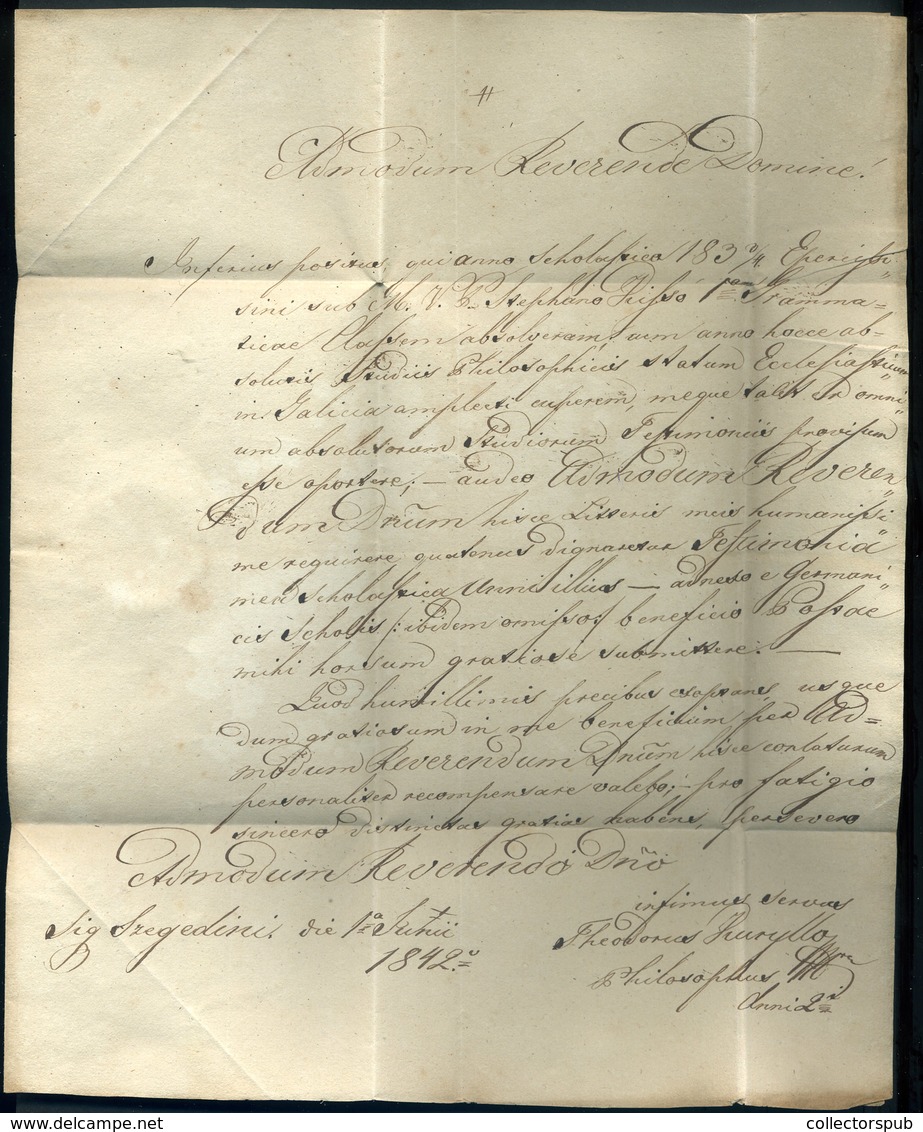 Admodum Reverende Domine!
Inferius positus, qui anno Scholastico 183 3/4 Eperiessi"
sini sub M. V. P. Stephano Kisso 1ae Gramma=
ticae Classem absolveram, cum anno hocce ab-
solutis Studiis Philosophicis statum Ecclesiasticum
in Galicia amplecti cuperem, meque talis omni"
um absolutorum Studiorum Testimoniis provisum
esse oportere; — audeo Admodum Reveren"
dum Dnum hisce Litteris meis humanissi"
me requirere, quatenus dignaretur Testimonia
mea Scholastica Anni illius — adnexo e Germani"
cis Scholis /: ibidem omisso :/ beneficio Postae
mihi horsum gratiose submittere. —
Quod humillimis precibus exoptans, usque
dum gratiosum in me beneficium, per Ad=
modum Reverendum Dnum hisce conlaturum
personaliter recompensare valebo; — pro fatigio
sincero distinctas gratias habens, persevero
Admodum Reverendo Dno
Sig Szegedini. die 1a Junii
1842o
infimus servus
Theodorus Kuryllo mpra
Philosophus
Anni 2di
collectorspub